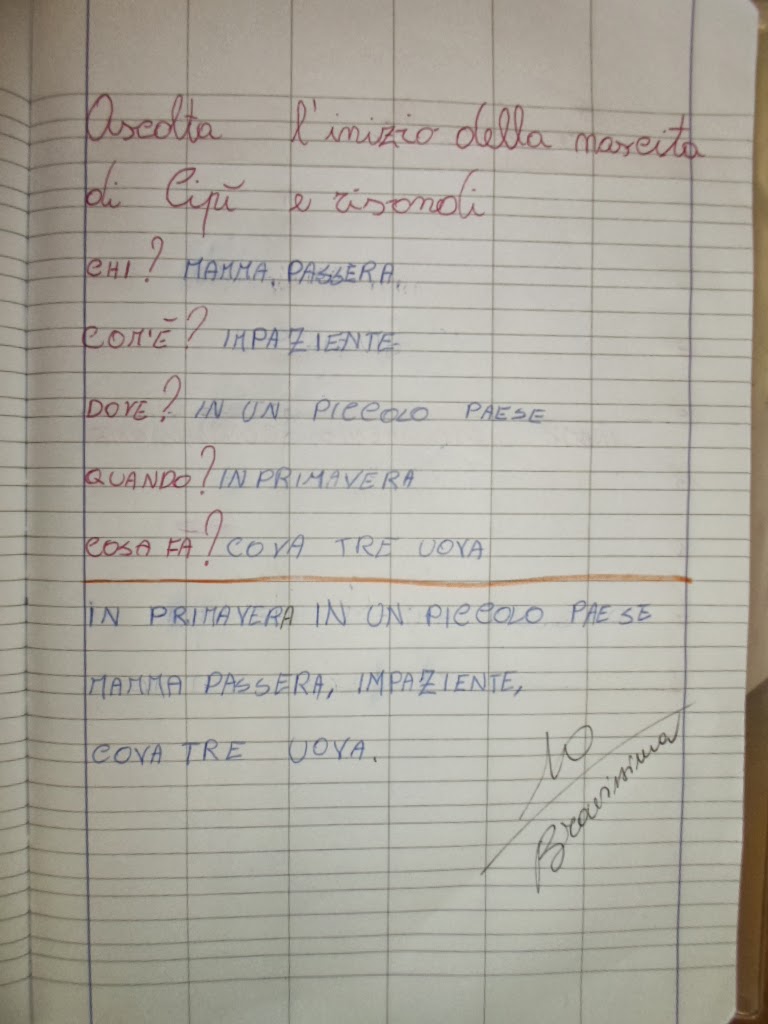 Ascolta l'inizio della nascita
di Cipì e risondi
CHI? MAMMA PASSERA.
COM'È? IMPAZIENTE
DOVE? IN UN PICCOLO PAESE
QUANDO? IN PRIMAVERA
COSA FÀ? COVA TRE UOVA
IN PRIMAVERA IN UN PICCOLO PAESE
MAMMA PASSERA, IMPAZIENTE,
COVA TRE UOVA.
10
Bravissima